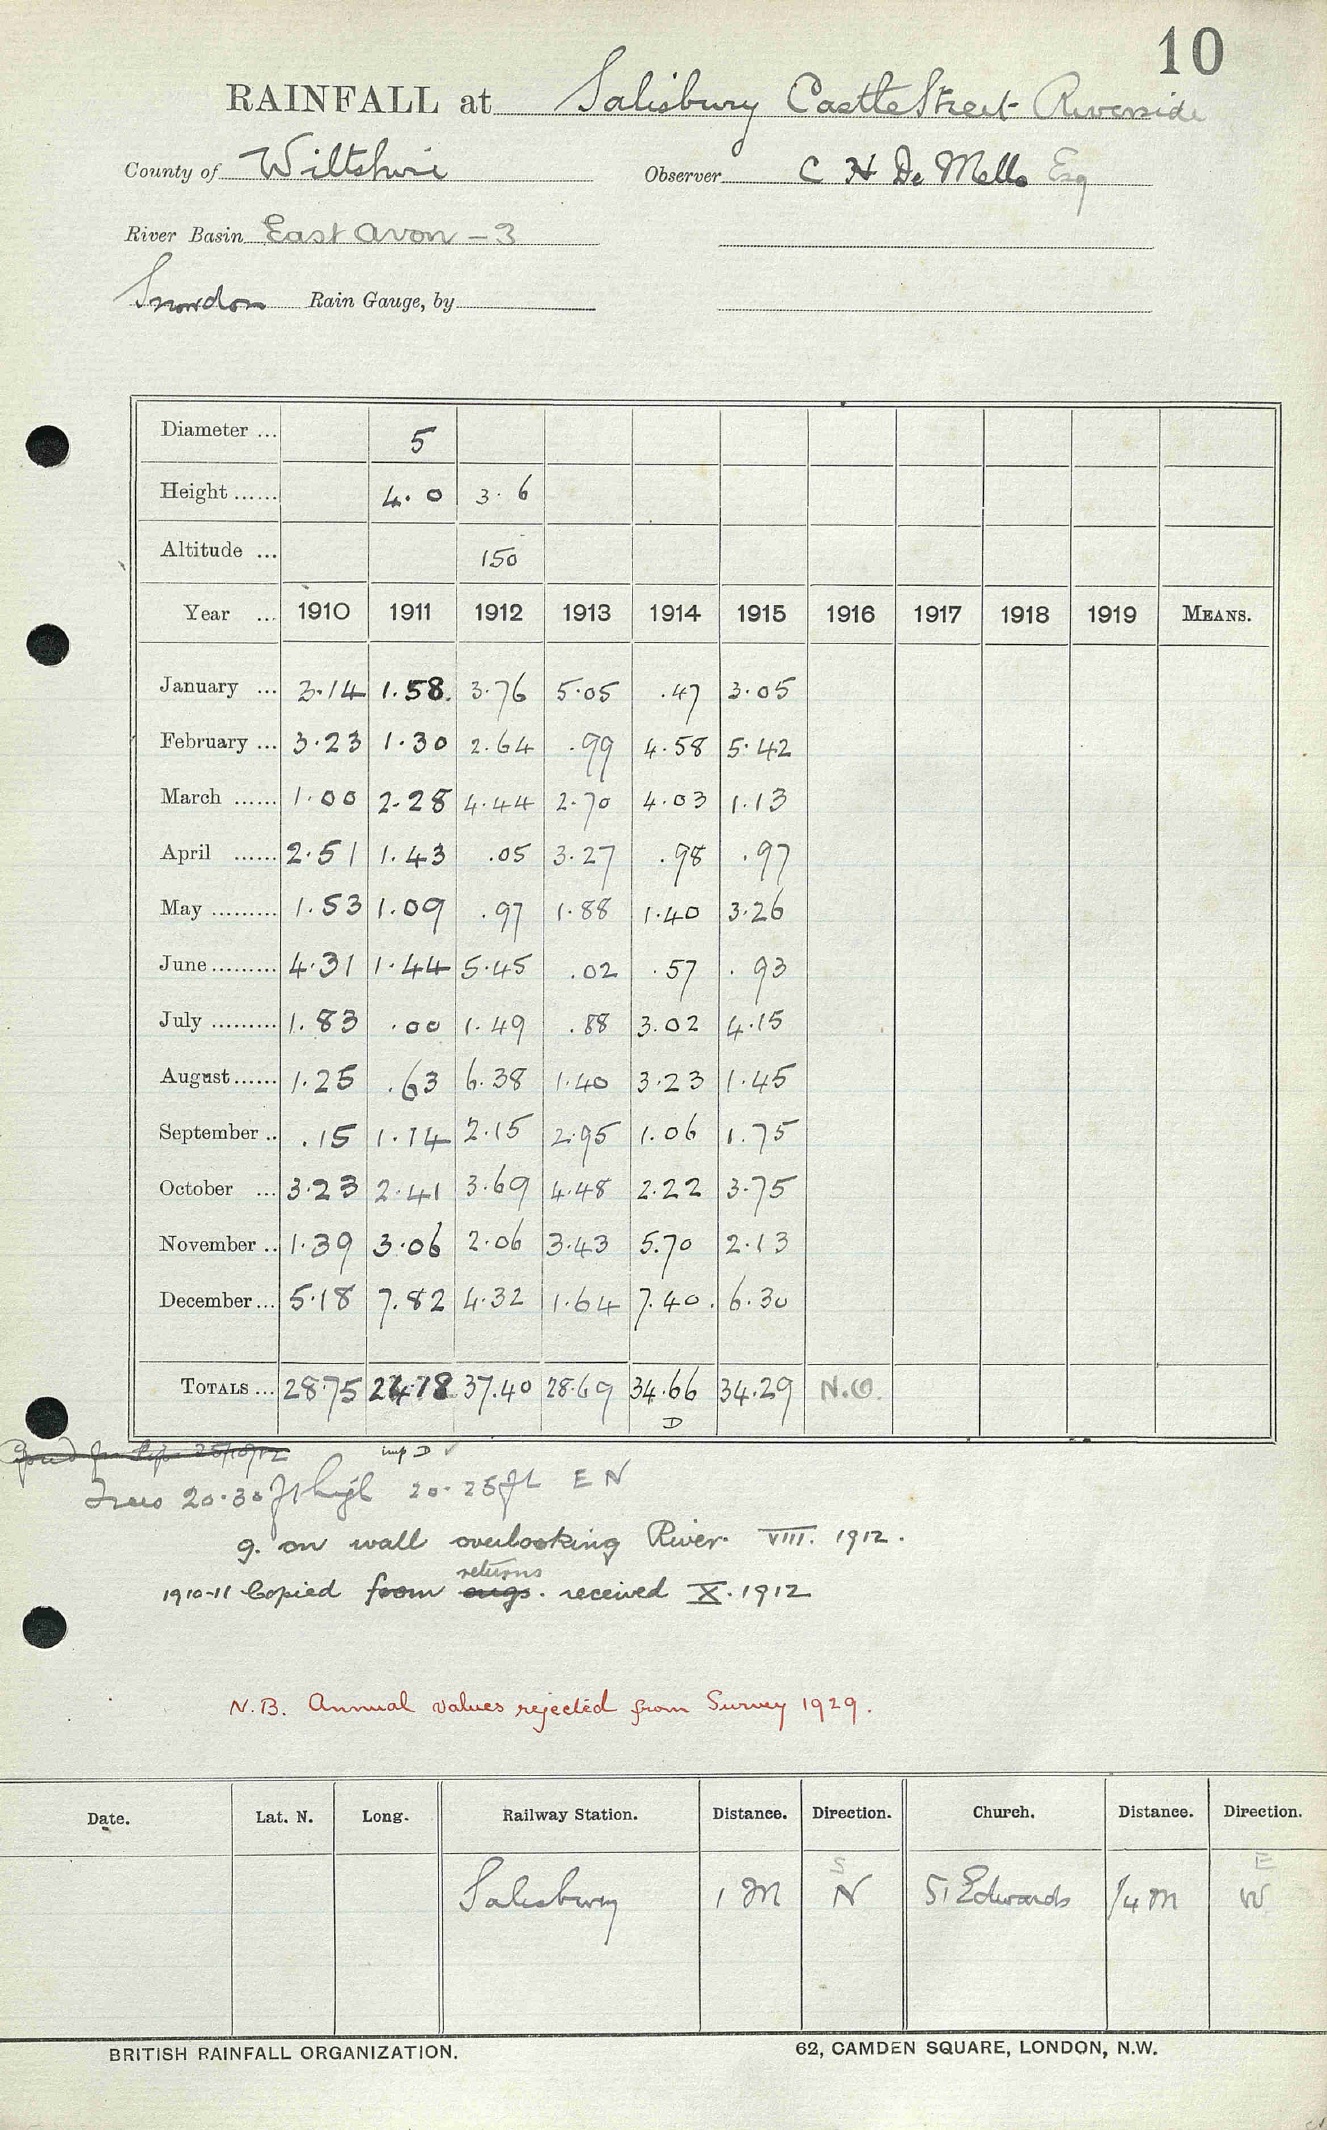 10
RAINFALL at Salisbury Castle Street Riverside
County of Wiltshire Observer C H De Mello Esq
River Basin East Avon - 3
Snowdon Rain Gauge, by
Diameter ... 5
Height ...... 4.0 3.6
Altitude ... 150
Year ... 1910 1911 1912 1913 1914 1915 1916 1917 1918 1919 MEANS.
January ... 3.14 1.58 3.76 5.05 .47 3.05
February ... 3.23 1.30 2.64 .99 4.58 5.42
March ...... 1.00 2.28 4.44 2.70 4.03 1.13
April ...... 2.51 1.43 .05 3.27 .98 .97
May ......... 1.53 1.09 .97 1.88 1.40 3.26
June ......... 4.31 1.44 5.45 .02 .57 .93
July ......... 1.83 .00 1.49 .88 3.02 4.15
August ...... 1.25 .63 6.38 1.40 3.23 1.45
September .. .15 1.74 2.15 2.95 1.06 1.75
October ... 3.23 2.41 3.69 4.48 2.22 3.75
November .. 1.39 3.06 2.06 3.43 5.70 2.13
December ... 5.18 7.82 4.32 1.64 7.40 6.30
TOTALS ... 28.75 24.78 37.40 28.69 34.66 34.29 N.O.
D
imp D ✓
Trees 20.30 ft high 20.25 ft E N
g. on wall overlooking River. VIII. 1912.
returns
1910-11 Copied from received X. 1912
N.B. Annual values rejected from Survey 1929.
Date. Lat. N. Long. Railway Station. Distance. Direction. Church. Distance. Direction.
S E
Salisbury 1 M N St Edwards 1/4 M W
BRITISH RAINFALL ORGANIZATION. 62, CAMDEN SQUARE, LONDON, N.W.